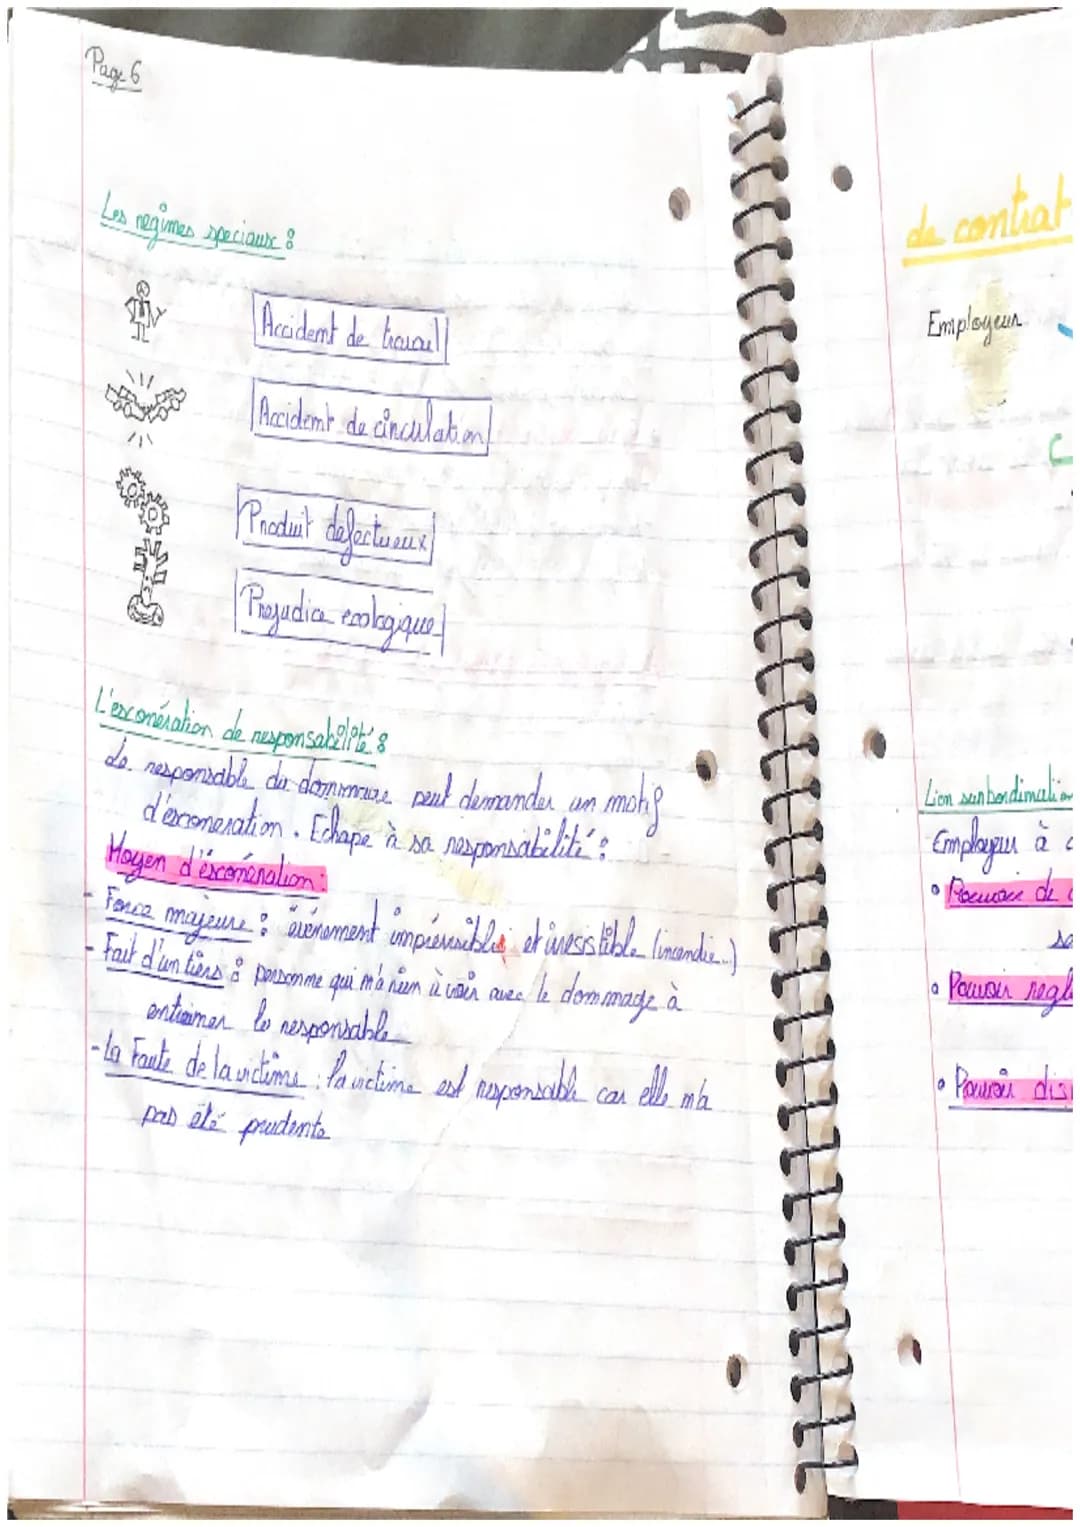 Page 6
Les regimes speciaux :
Accident de travail
Accident de circulation
Produit defectueux
Prejudice ecologique
L'exonération de responsabilité :
Le responsable du dommaire peut demander un motif
d'exoneration. Echape à sa responsabilité :
Moyen d'éxonénation :
- Force majeure : évènement imprévisible et irresistible (incendie...)
- Fait d'un tiers : personne qui n'a rien à voir avec le dommage à
entrainer le responsable
- La Faute de la victime : la victime est responsable car elle n'a
pas été prudente
de contrat
Employeur
Lien
Employeur à
• Pouvoir de
• Pouvoir regle
• Pouvoir dis